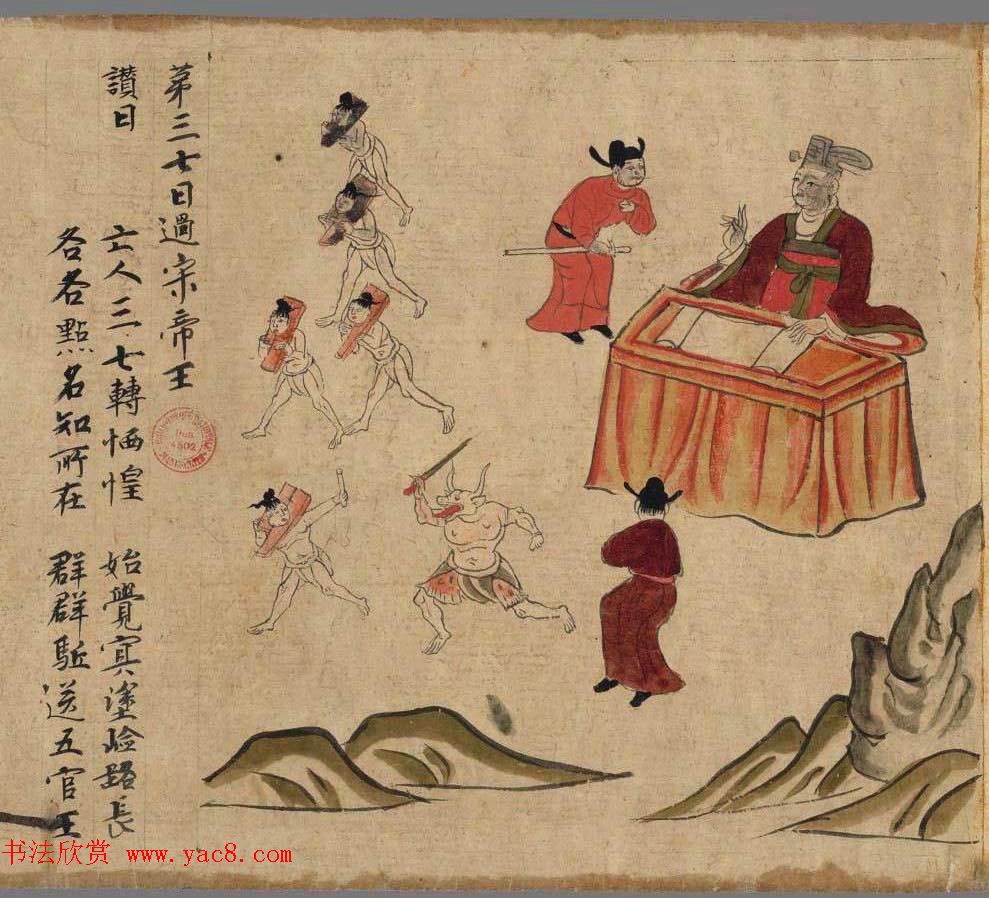 第三七日過宋帝王
讃曰
亡人三七轉恓惶 始覺冥塗嶮路長
各各點名知所在 群群駈送五官王
4502
书法欣赏 www.yac8.com